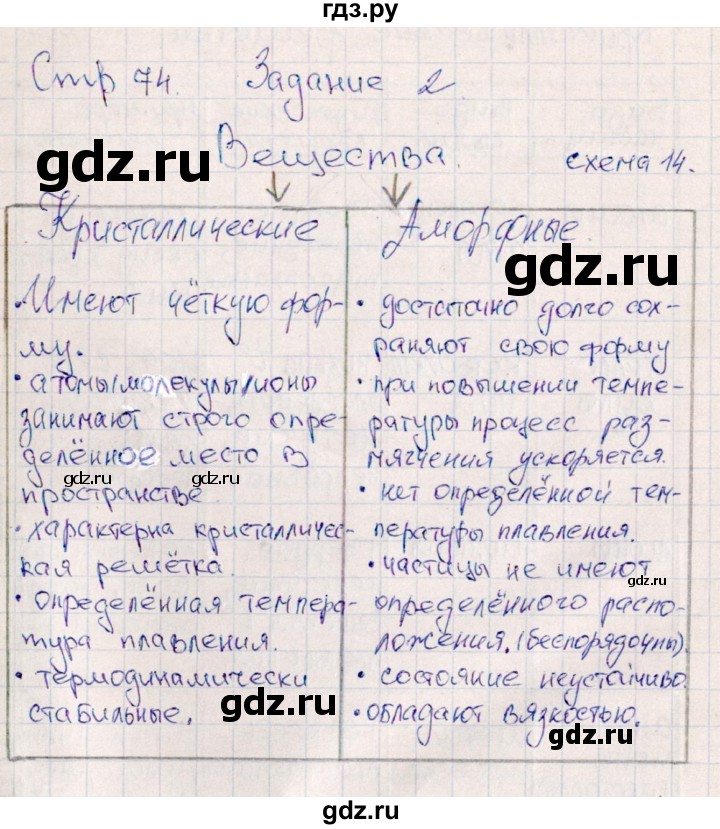 гдз.ру
Стр 74. Задание 2
gdz.ru
Вещества. схема 14.
Кристаллические
Имеют чёткую фор-
му.
• атомы/молекулы/ионы
занимают строго опре-
делённое место в
gdz.ru
пространстве.
• характерна кристалличес-
кая решётка.
• определённая темпера-
тура плавления.
• термодинамически
стабильные.
gdz.ru
Аморфные.
gdz.ru
• достаточно долго сох-
раняют свою форму
• при повышении темпе-
ратуры процесс раз-
мягчения ускоряется.
gdz.ru
• нет определённой тем-
пературы плавления.
• частицы не имеют
gdz.ru
определённого распо-
ложения. (беспорядочны).
• состояние неустойчиво.
• обладают вязкостью.
gdz.ru
gdz.ru